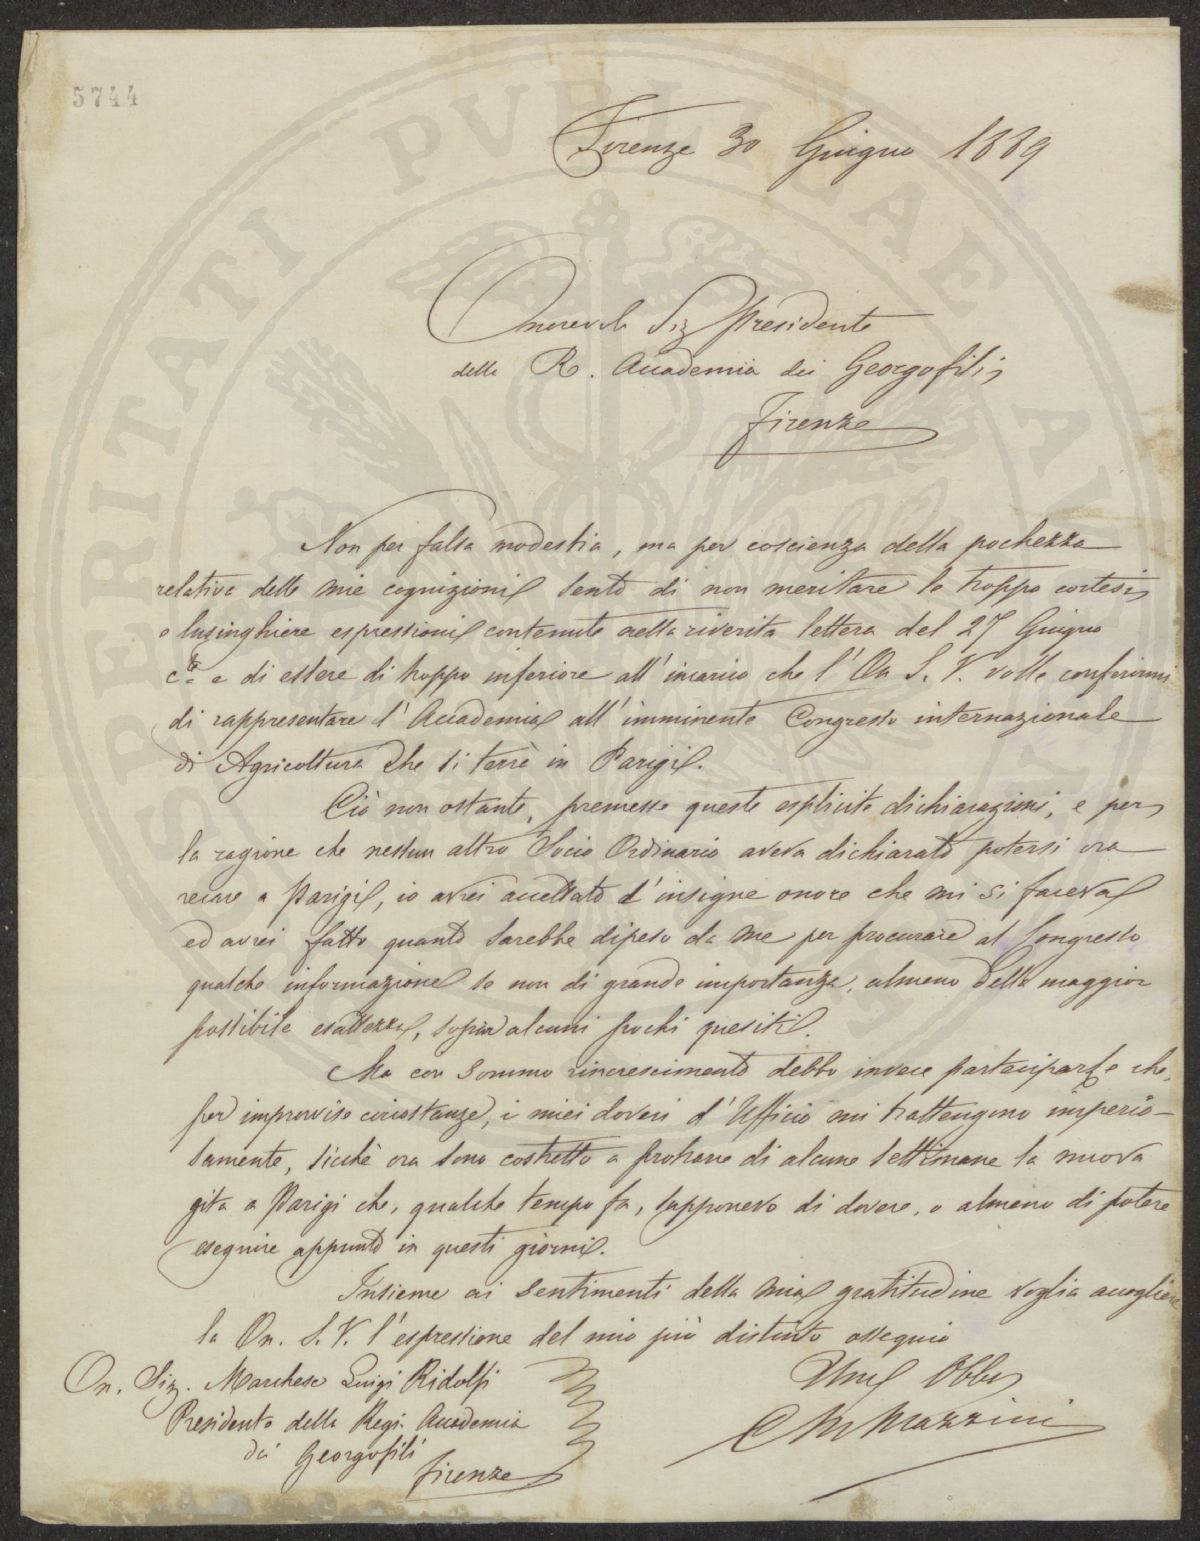 5744
Firenze 30 Giugno 1889
Onorevole Sig Presidente
della R. Accademia dei Georgofili
Firenze
Non per falsa modestia, ma per coscienza della pochezza
relativa delle mie cognizioni sento di non meritare le troppo cortesi
e lusinghiere espressioni contenute nella riverita lettera del 27 Giugno
e di essere di troppo inferiore all'incarico che l'On S. V. volle conferirmi
di rappresentare l'Accademia all'imminente Congresso internazionale
di Agricoltura che si terrà in Parigi.
Ciò non ostante, premesse queste esplicite dichiarazioni, e per
la ragione che nessun altro Socio Ordinario aveva dichiarato potersi ora
recare a Parigi, io avrei accettato l'insigne onore che mi si faceva
ed avrei fatto quanto sarebbe dipeso da me per procurare al Congresso
qualche informazione se non di grande importanza, almeno della maggior
possibile esattezza, sopra alcuni pochi quesiti.
Ma con sommo rincrescimento debbo invece parteciparle che,
per improvvise circostanze, i miei doveri d'Ufficio mi trattengono imperio-
samente, sicchè ora sono costretto a protrarre di alcune settimane la nuova
gita a Parigi che, qualche tempo fa, supponevo di dovere, o almeno di potere
eseguire appunto in questi giorni.
Insieme ai sentimenti della mia gratitudine voglia accogliere
la On. S. V. l'espressione del mio più distinto ossequio
On. Sig. Marchese Luigi Ridolfi
Presidente della Regi. Accademia
dei Georgofili
Firenze
Uml Obb
C M Mazzini
SPERITATI PVBLICAE AV